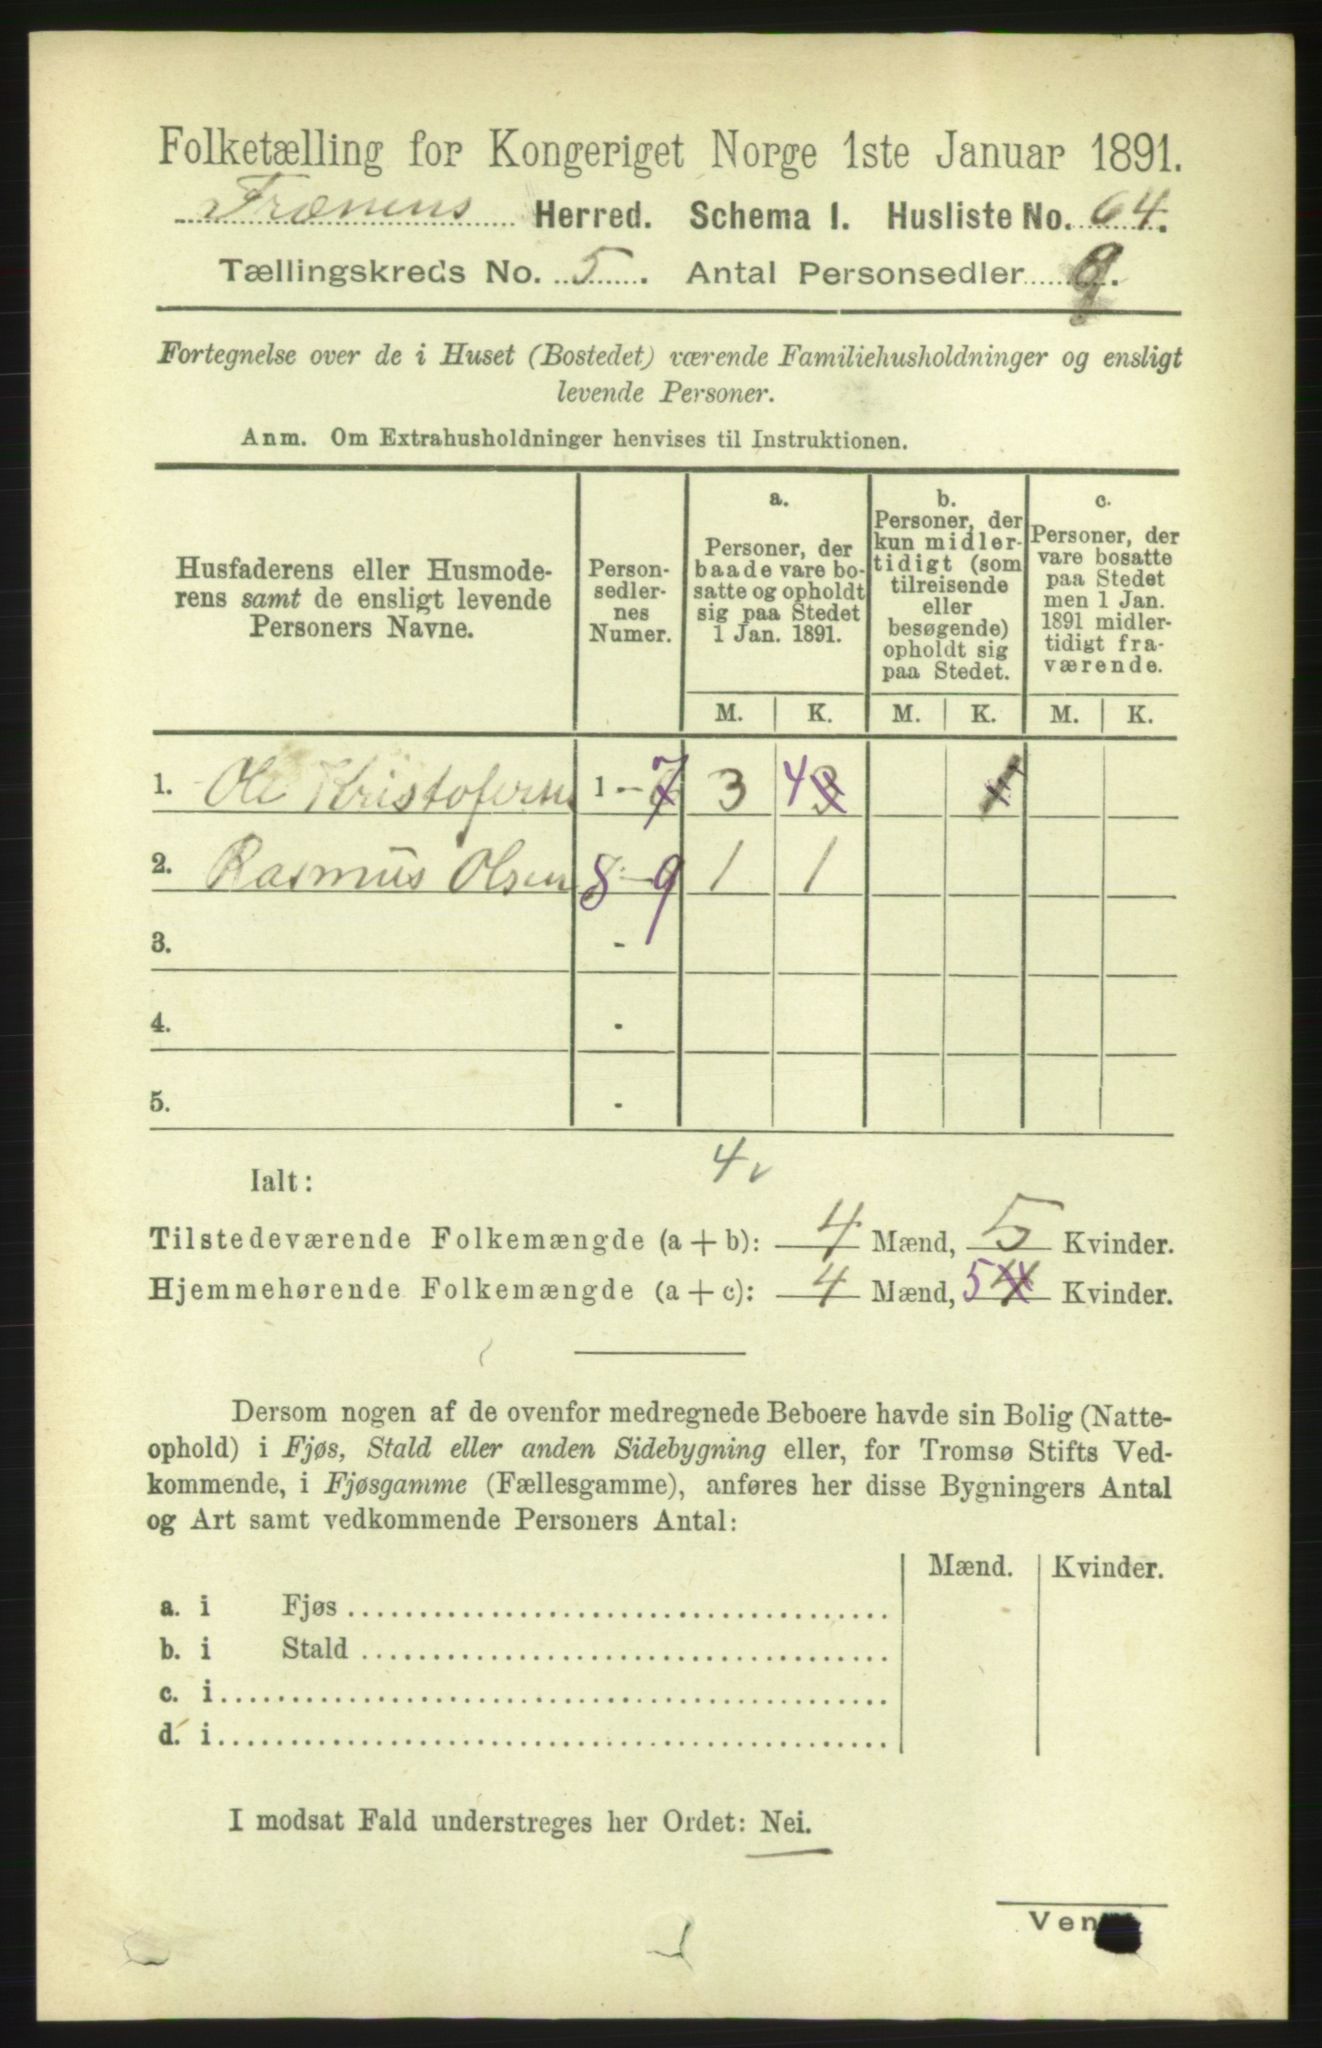 Folketælling for Kongeriget Norge 1ste Januar 1891.
Frænens Herred. Schema I. Husliste No. 64.
Tællingskreds No. 5. Antal Personsedler 9.
Fortegnelse over de i Huset (Bostedet) værende Familiehusholdninger og ensligt
levende Personer.
Anm. Om Extrahusholdninger henvises til Instruktionen.
Husfaderens eller Husmode-
rens samt de ensligt levende
Personers Navne.
Person-
sedler-
nes
Numer.
a.
Personer, der
baade vare bo-
satte og opholdt
sig paa Stedet
1 Jan. 1891.
b.
Personer, der
kun midler-
tidigt (som
tilreisende
eller
besøgende)
opholdt sig
paa Stedet.
c.
Personer, der
vare bosatte
paa Stedet
men 1 Jan.
1891 midler-
tidigt fra-
værende.
M. K. M. K. M. K.
1. Ole Kristofersen 1 - 7 3 4 3 1
2. Rasmus Olsen 8 - 9 1 1
3. -
4. -
5. -
4 v
Ialt:
Tilstedeværende Folkemængde (a + b): 4 Mænd, 5 Kvinder.
Hjemmehørende Folkemængde (a + c): 4 Mænd, 5 4 Kvinder.
Dersom nogen af de ovenfor medregnede Beboere havde sin Bolig (Natte-
ophold) i Fjøs, Stald eller anden Sidebygning eller, for Tromsø Stifts Ved-
kommende, i Fjøsgamme (Fællesgamme), anføres her disse Bygningers Antal
og Art samt vedkommende Personers Antal:
Mænd. Kvinder.
a. i Fjøs
b. i Stald
c. i
d. i
I modsat Fald understreges her Ordet: Nei.
Ven